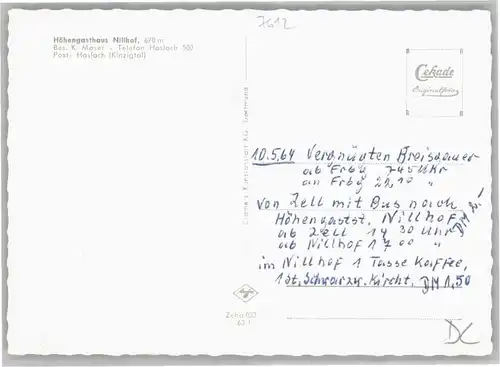 7612
Höhengasthaus Nillhof, 670 m
Bes. K. Moser - Telefon Haslach 503
Post: Haslach (Kinzigtal)
Cekade
Originalfoto
10.5.64 Vergnügten Breisgauer
ab Frbg 7 45 Uhr
an Frbg 22,10 "
Von Zell mit Bus nach DM 2.-!
Höhengastst. Nillhof
ab Zell 14 30 Uhr
ab Nillhof 17 00 "
im Nillhof 1 Tasse Kaffee,
1 St. Schwarzw. Kircht. DM 1,50
Agfa
Zeha 033
63 1
Cramers Kunstanstalt KG, Dortmund